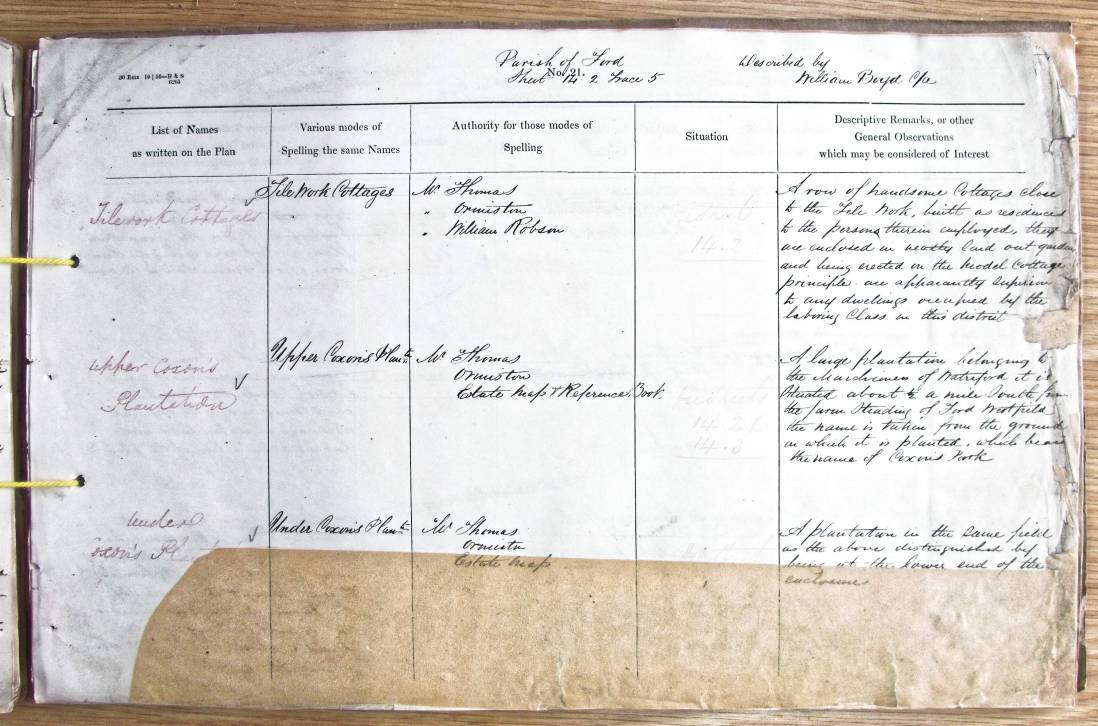 20 Rms 10 | 56—H & S
6205
Parish of Ford
No. 21.
Sheet 14. 2 Trace 5
Described by
William Boyd C/a
List of Names
as written on the Plan
Various modes of
Spelling the same Names
Authority for those modes of
Spelling
Situation
Descriptive Remarks, or other
General Observations
which may be considered of Interest
Tilework Cottages
Tile Work Cottages
Mr Thomas
" Ormiston
" William Robson
14.2
A row of handsome Cottages close
to the Tile Work, built as residences
to the persons therein employed, they
are enclosed in neatly laid out garden
and being erected on the Model Cottage
principle are apparantly superior
to any dwellings occupied by the
laboring Class in this district
Upper Coxon's
Plantation
Upper Coxon's Plantn
Mr Thomas
Ormiston
Estate Map & Reference Book.
14.2 &
14.3
A large plantation belonging to
the Marchioness of Watreford it is
Situated about ½ a mile South from
the farm Steading of Ford Westfield
the name is taken from the ground
on which it is planted, which bears
the name of Coxon's
Under
Coxon's Pl
Under Coxon's Plantn
Mr Thomas
Ormiston
Estate Map
A plantation in the same field
as the above distinguished by
being at the lower end of the
enclosures